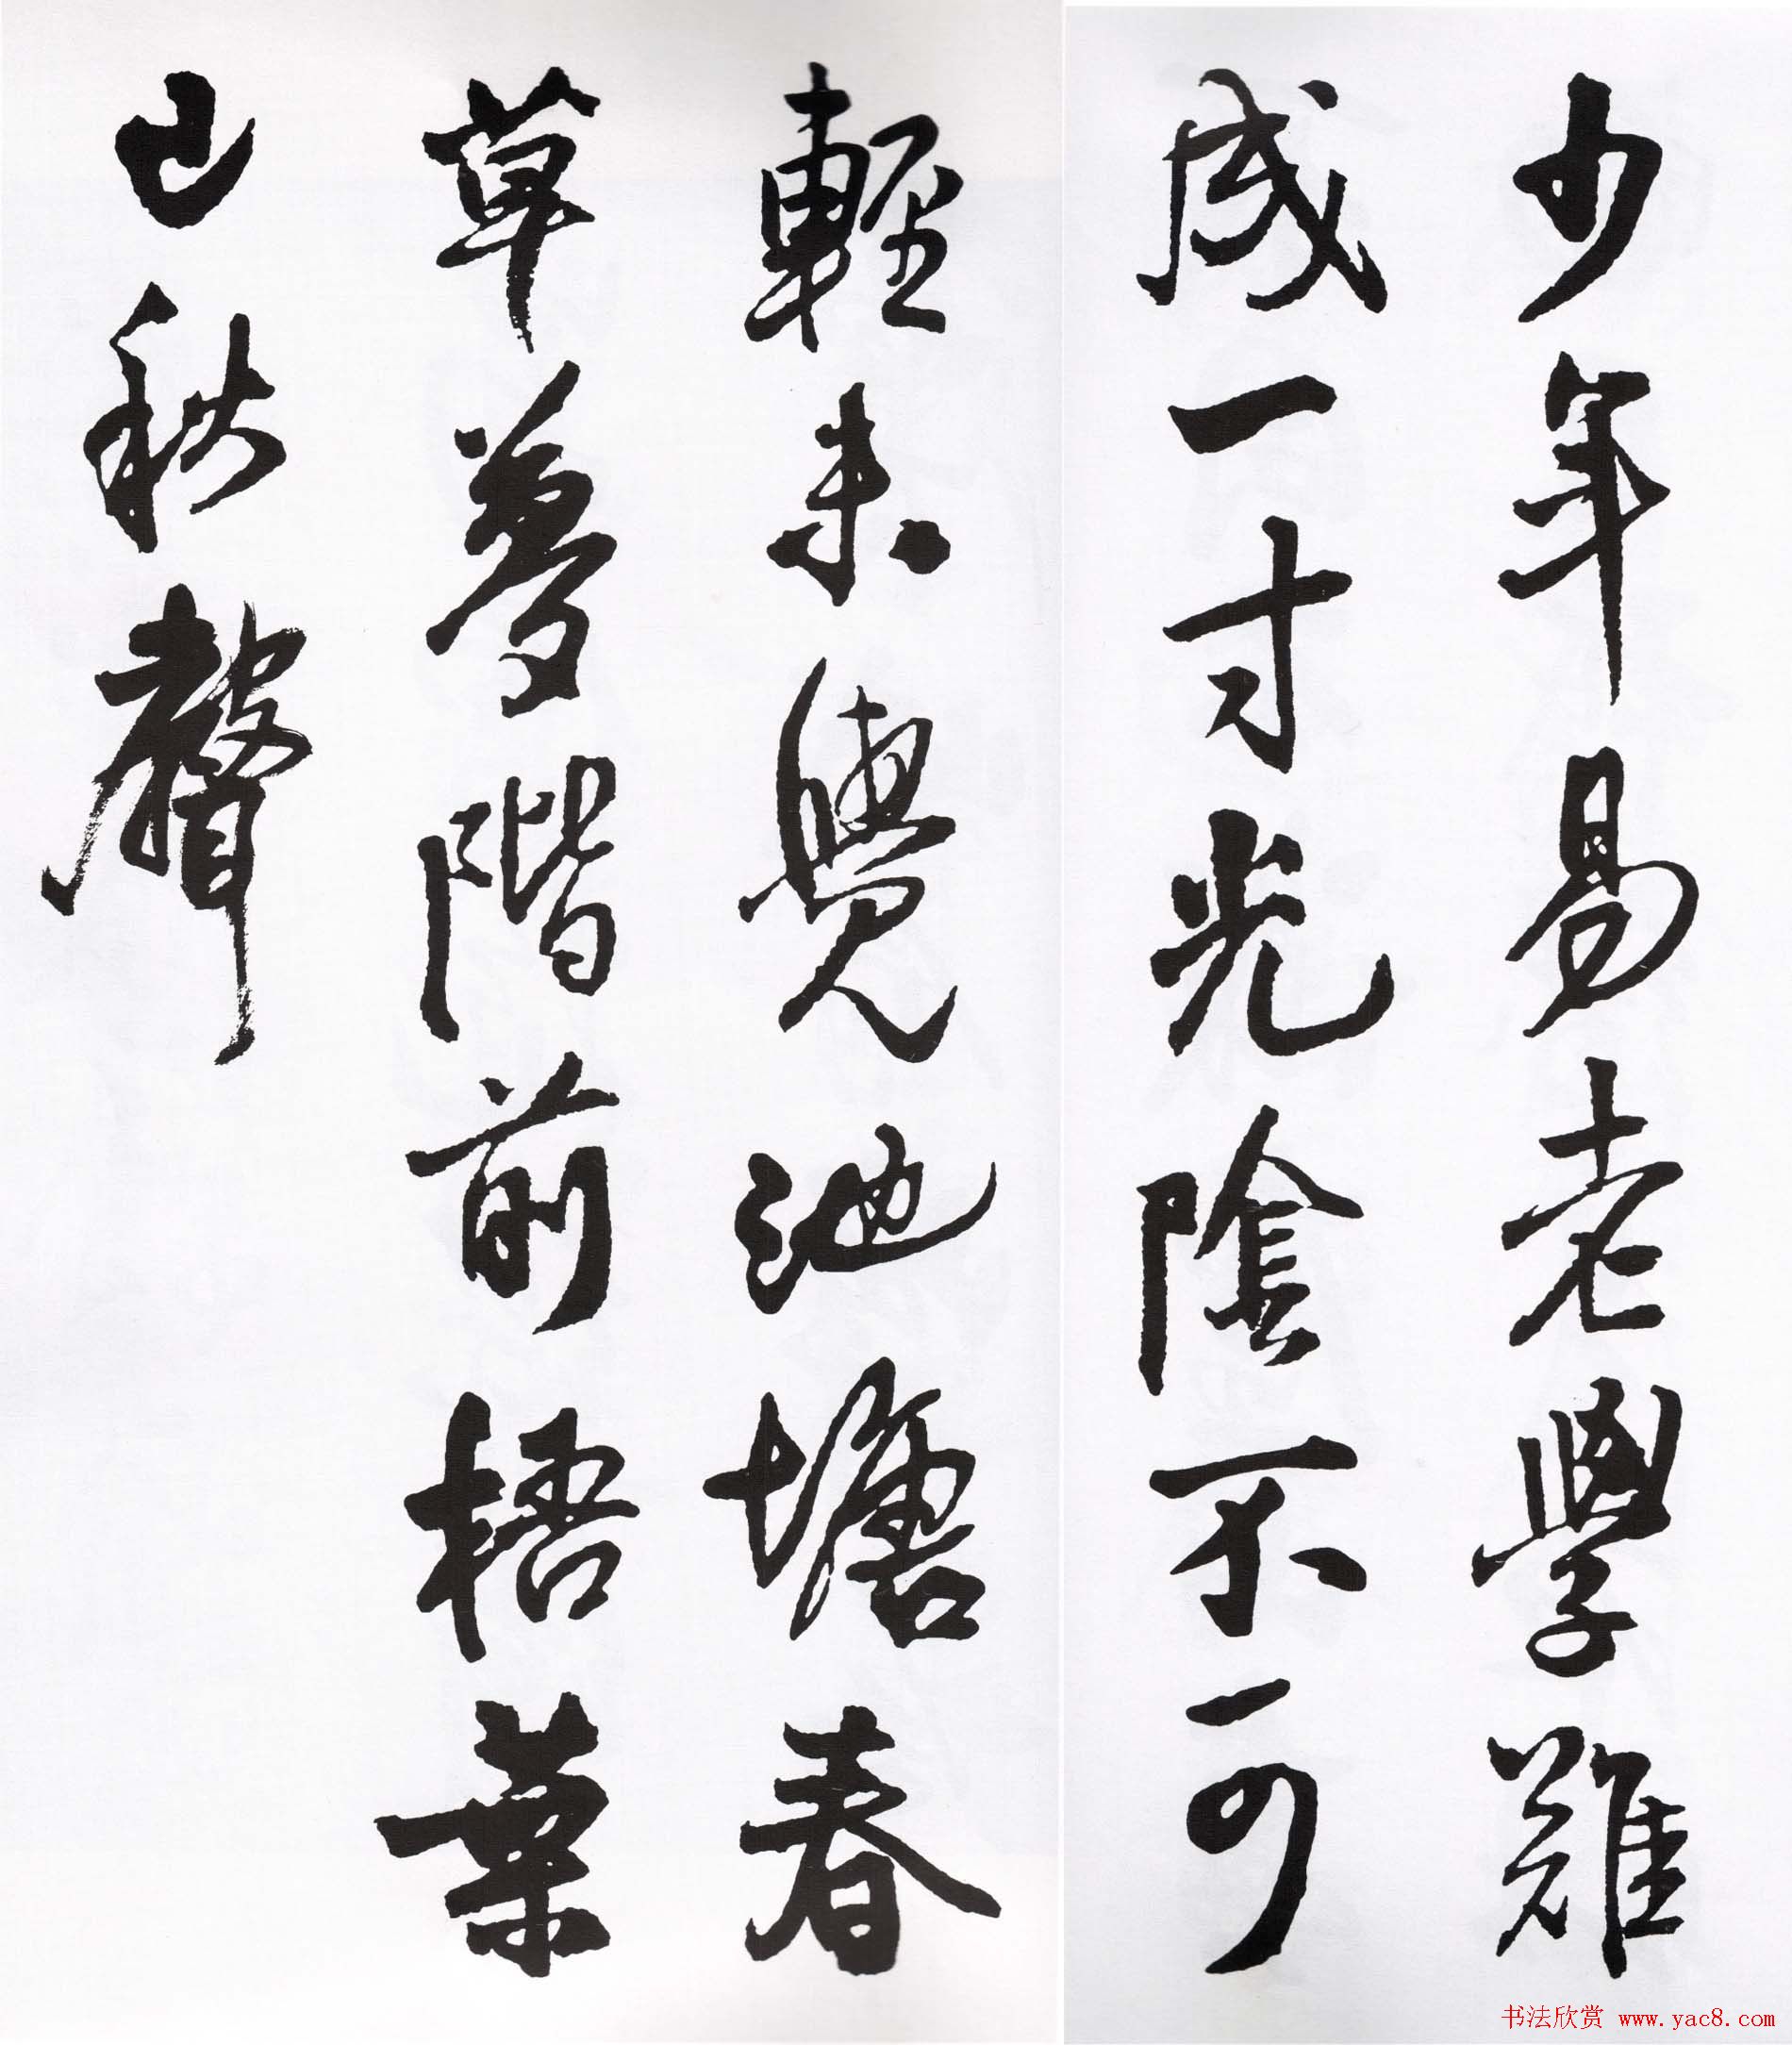 少年易老學難
成一寸光陰不可
輕未覺池塘春
草夢階前梧葉
已秋聲
书法欣赏 www.yac8.com